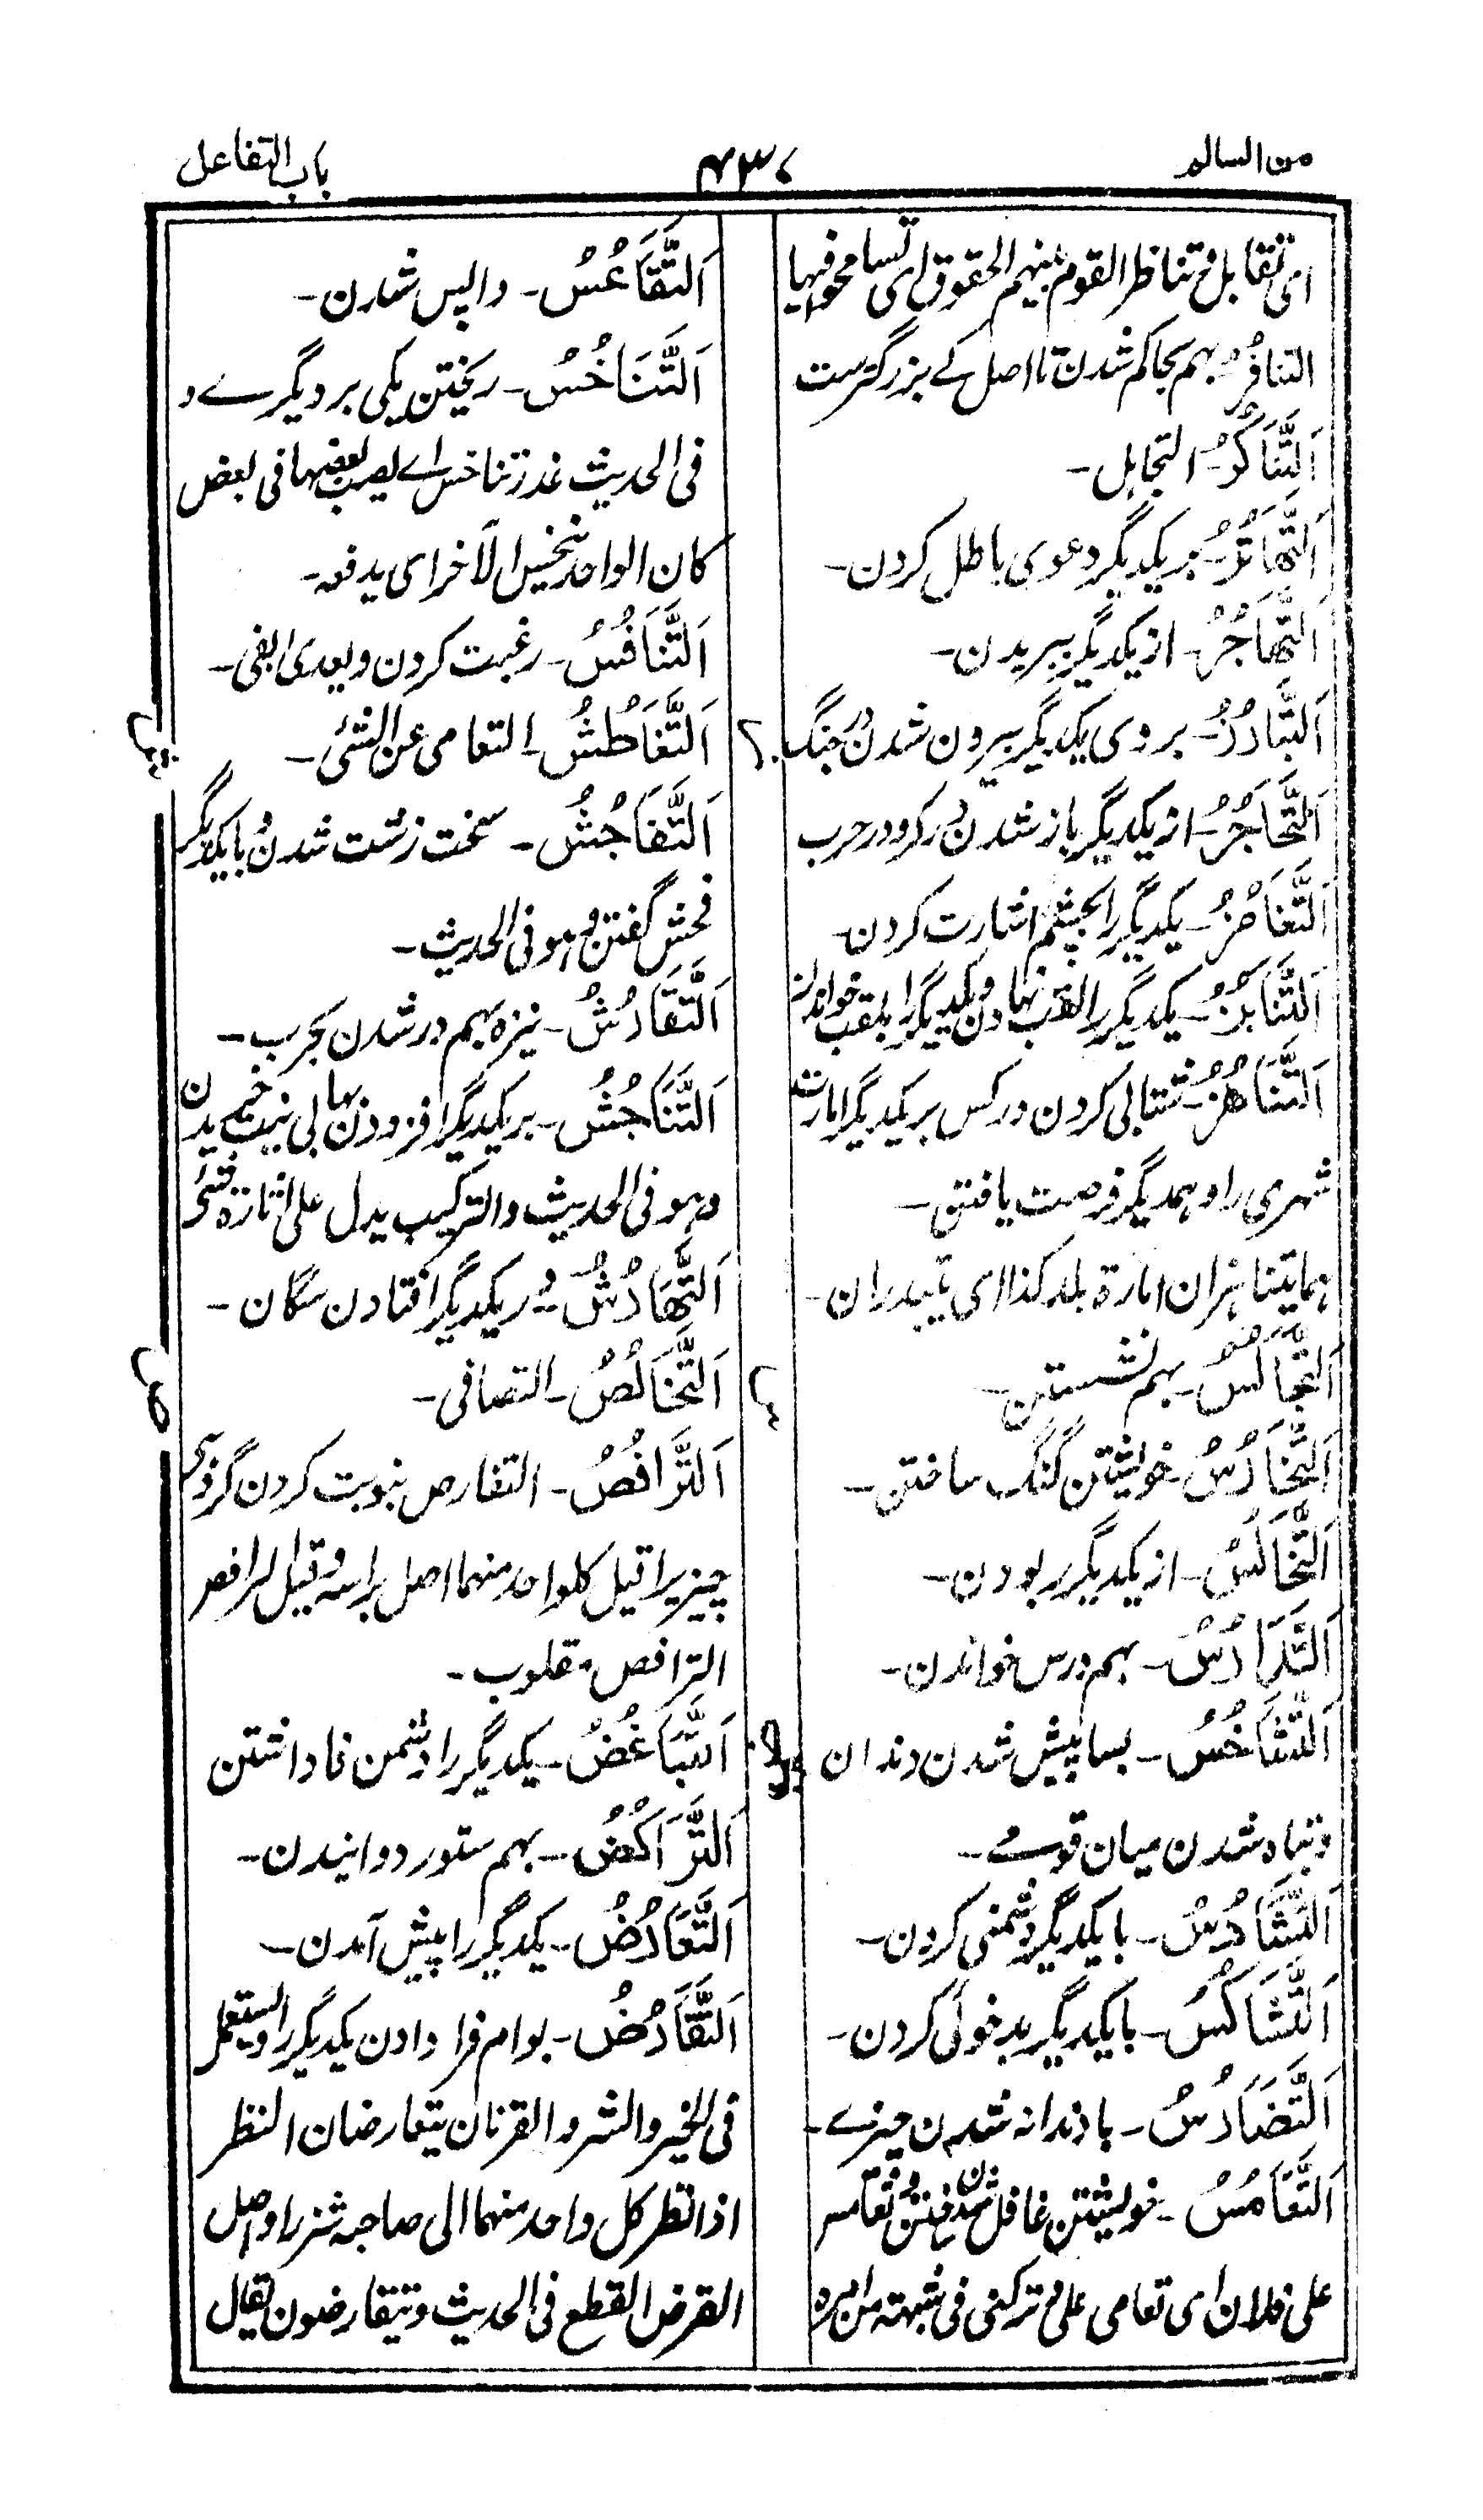 من السالم
۷۳۷
باب التفاعل
ای تقابل و تناظر القوم بینهم الحقوق ای تسامحوا فیها
التنافُرُ ـ بهم بحاکم شدن تا اصل کے بزرگترست
اَلتَّنَاکُرُ ـ التجاهل ـ
اَلتَّهَاتُرُ ـ بر یکدیگر دعوی باطل کردن ـ
اَلتَّهَاجُرُ ـ از یکدیگر ببریدن ـ
اَلتَّبَارُزُ ـ بروی یکدیگر بیرون شدن در جنگ
ز
اَلتَّحَاجُزُ ـ از یکدیگر باز شدن در حرب
اَلتَّغَامُزُ ـ یکدیگر را بچشم اشارت کردن ـ
اَلتَّنَابُزُ ـ یکدیگر را لقب نهادن و یکدیگر را بلقب خواندن
اَلتَّنَاهُزُ ـ شتابی کردن در کس بر یکدیگر امارت
شهری را و همدیگر فرصت یافتن ـ
هما یتناهزان امارة بلد کذا ای یتبدران ـ
اَلتَّجَالُسُ ـ بهم نشستن ـ
س
اَلتَّخَارُسُ ـ خویشتن گنگ ساختن ـ
اَلتَّخَالُسُ ـ از یکدیگر ربودن ـ
اَلتَّدَارُسُ ـ بهم درس خواندن ـ
اَلتَّشَاخُسُ ـ بسا پیش شدن دندان
و تباه شدن میان قومے ـ
اَلتَّشَارُسُ ـ با یکدیگر دشمنی کردن ـ
اَلتَّشَاکُسُ ـ با یکدیگر بدخوئی کردن ـ
اَلتَّضَارُسُ ـ با دندانه شدن چیزے ـ
اَلتَّغَامُسُ ـ خویشتن غافل
علی فلان ای تعامی علی و ترکنی فی شبهته من امره
اَلتَّقَاعُسُ ـ واپس شدن ـ
اَلتَّنَاخُسُ ـ ریختن یکی بر دیگرے و
فی الحدیث غدر تناخس اے یصب بعضها فی بعض
کان الواحد ینخس الآخر ای یدفعه ـ
اَلتَّنَافُسُ ـ رغبت کردن و یعدی بفی ـ
اَلتَّغَاطُشُ ـ التعامی عن الشئی ـ
ش
اَلتَّفَاحُشُ ـ سخت زشت شدن و با یکدیگر
فحش گفتن و هو فی الحدیث ـ
اَلتَّقَارُشُ ـ نیزه بهم در شدن بحرب ـ
اَلتَّنَاجُشُ ـ بر یکدیگر افزودن بها بی نیت خریدن
و هو فی الحدیث و الترکیب یدل علی اثارة شئ
اَلتَّهَارُشُ ـ در یکدیگر افتادن سگان ـ
اَلتَّخَالُصُ ـ التصافی ـ
ص
اَلتَّرَافُصُ ـ التفارص نبوبت کردن گروهی
چیزیرا قیل کلواحد منهما اصل براسه و قیل
الترافص مقلوب ـ
اَلتَّبَاغُضُ ـ یکدیگر را دشمن فا داشتن
ض
اَلتَّرَاکُضُ ـ بهم ستور دوانیدن ـ
اَلتَّعَارُضُ ـ یکدیگر را پیش آمدن ـ
اَلتَّقَارُضُ ـ بوام فرا دادن یکدیگر را و یستعمل
فی الخیر و الشر و القرنان یتقارضان النظر
اذا نظر کل واحد منهما الی صاحبه شزرا و اصل
القرض القطع فی الحدیث و یتقارضون یقال